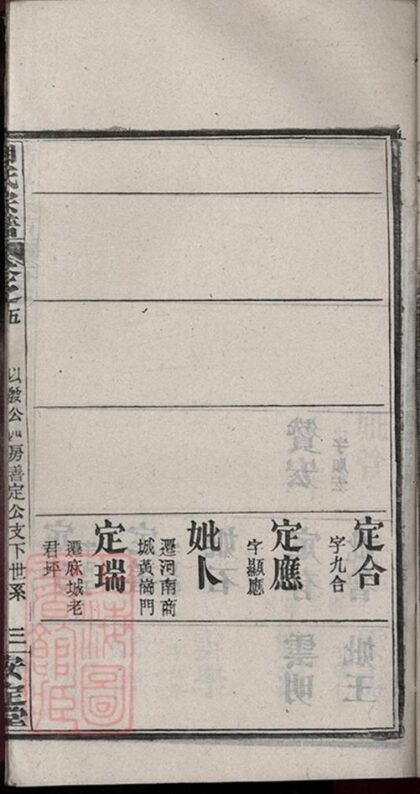 定合
字九合
定應
字顯應
妣卜
遷河南商
城黃崗門
定瑞
遷麻城老
君坪
氏宗譜
卷之五
以發公四房善定公支下世系
三
安定堂